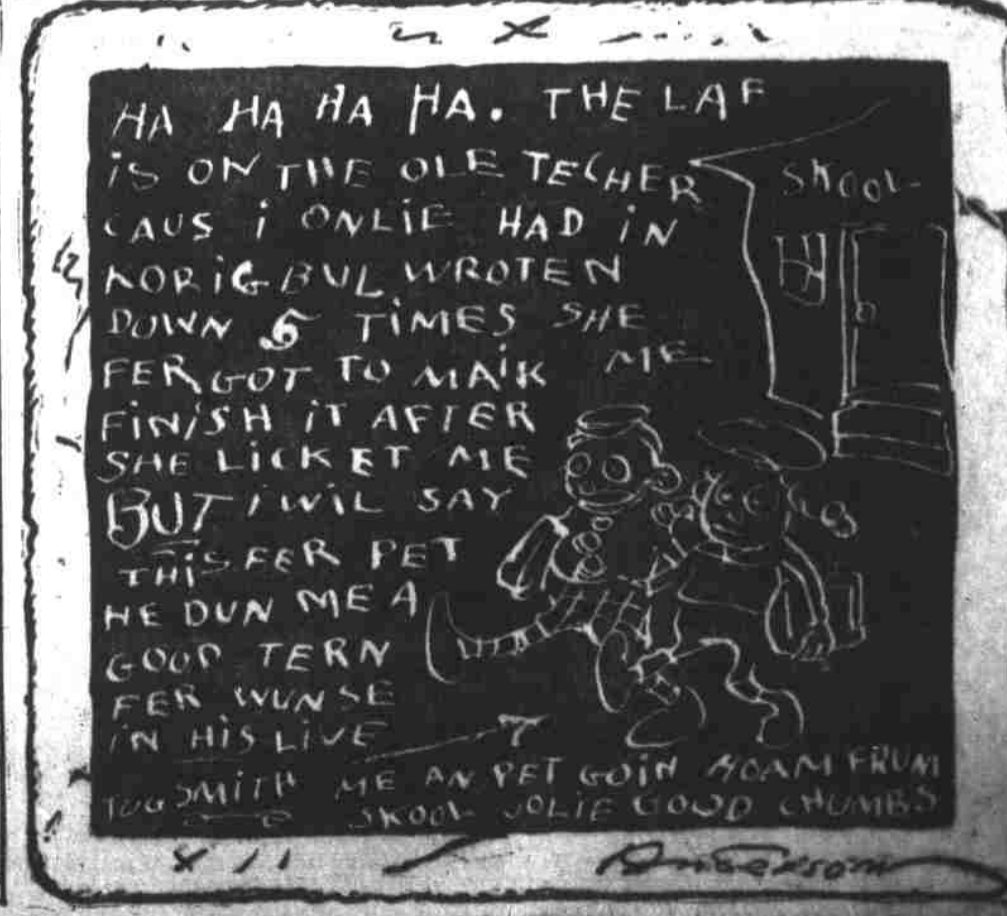 HA HA HA HA. THE LAF
iS ON THE OLE TECHER
CAUS i ONLiE HAD iN
KORiGBUL WROTEN
DOWN 5 TiMES SHE
FERGOT TO MAiK ME
FiNiSH iT AFTER
SHE LICKET ME
BUT i WiL SAY
THiS FER PET
HE DUN ME A
GOOD TERN
FER WUNSE
iN HiS LiVE
TUG SMiTH
ME AN PET GOiN HOAM FRUM
SKOOL JOLIE GOOD CHUMBS
SKOOL
Anderson